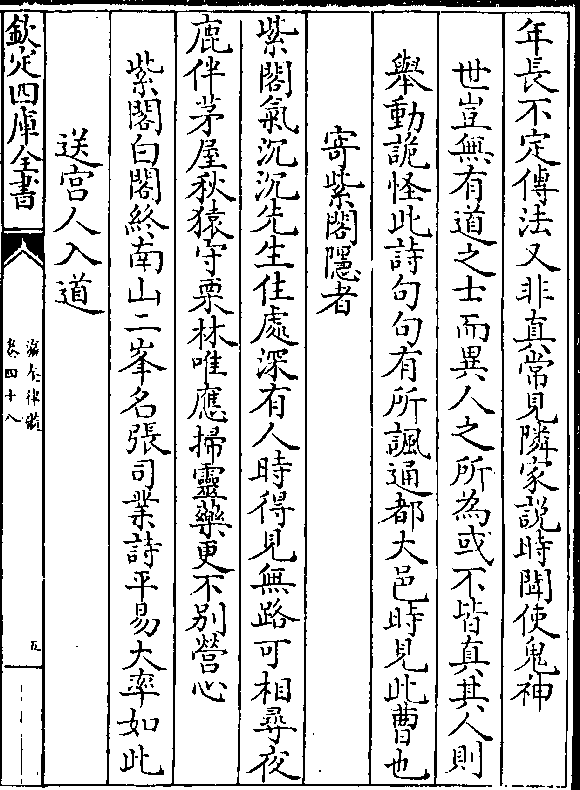 年長不定傳法又非真常見隣家説時聞使鬼神
世豈無有道之士而異人之所為或不皆真其人則
舉動詭怪此詩句句有所諷通都大邑時見此曹也
寄紫閣隱者
紫閣氣沉沉先生住處深有人時得見無路可相尋夜
鹿伴茅屋秋猿守栗林唯應掃靈藥更不别營心
紫閣白閣終南山二峯名張司業詩平易大率如此
送宫人入道
欽定四庫全書
瀛奎律髓
卷四十八
五